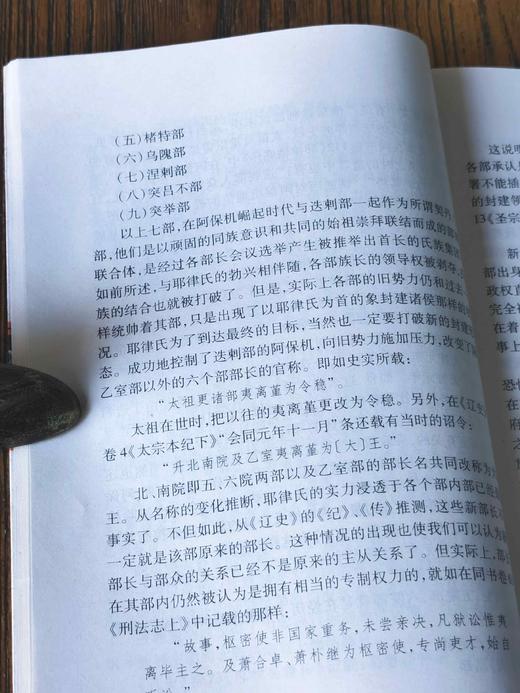 （五）楮特部
（六）乌隗部
（七）涅剌部
（八）突吕不部
（九）突举部
以上七部，在阿保机崛起时代与迭剌部一起作为所谓契丹
部，他们是以顽固的同族意识和共同的始祖崇拜联结而成的
联合体，是经过各部长会议选举产生被推举出首长的氏族集
如前所述，与耶律氏的勃兴相伴随，各部族长的领导权被剥夺，
族的结合也就被打破了。但是，实际上各部的旧势力仍和过去
样统帅着其部，只是出现了以耶律氏为首的象封建诸侯那样的
况。耶律氏为了到达最终的目标，当然也一定要打破新的封建
态。成功地控制了迭剌部的阿保机，向旧势力施加压力，改变了
乙室部以外的六个部部长的官称。即如史实所载：
“太祖更诸部夷离堇为令稳”。
太祖在世时，把以往的夷离堇更改为令稳。另外，在《辽史》
卷4《太宗本纪下》“会同元年十一月”条还载有当时的诏令：
“升北南院及乙室夷离堇为〔大〕王。”
北、南院即五、六院两部以及乙室部的部长名共同改称为
王。从名称的变化推断，耶律氏的实力浸透于各个部内部已经
事实了。不但如此，从《辽史》的《纪》、《传》推测，这些新部长
一定就是该部原来的部长。这种情况的出现也使我们可以认为
部长与部众的关系已经不是原来的主从关系了。但实际上，部
在其部内仍然被认为是拥有相当的专制权力的，就如在同书卷
《刑法志上》中记载的那样：
“故事，枢密使非国家重务，未尝亲决，凡狱讼惟夷
离毕主之。及萧合卓、萧朴继为枢密使，专尚吏才，始自
这说明
各部承认
署不能插
的封建领
13《圣宗
新
部出身
政权直
完全被
事上
恐
府
之